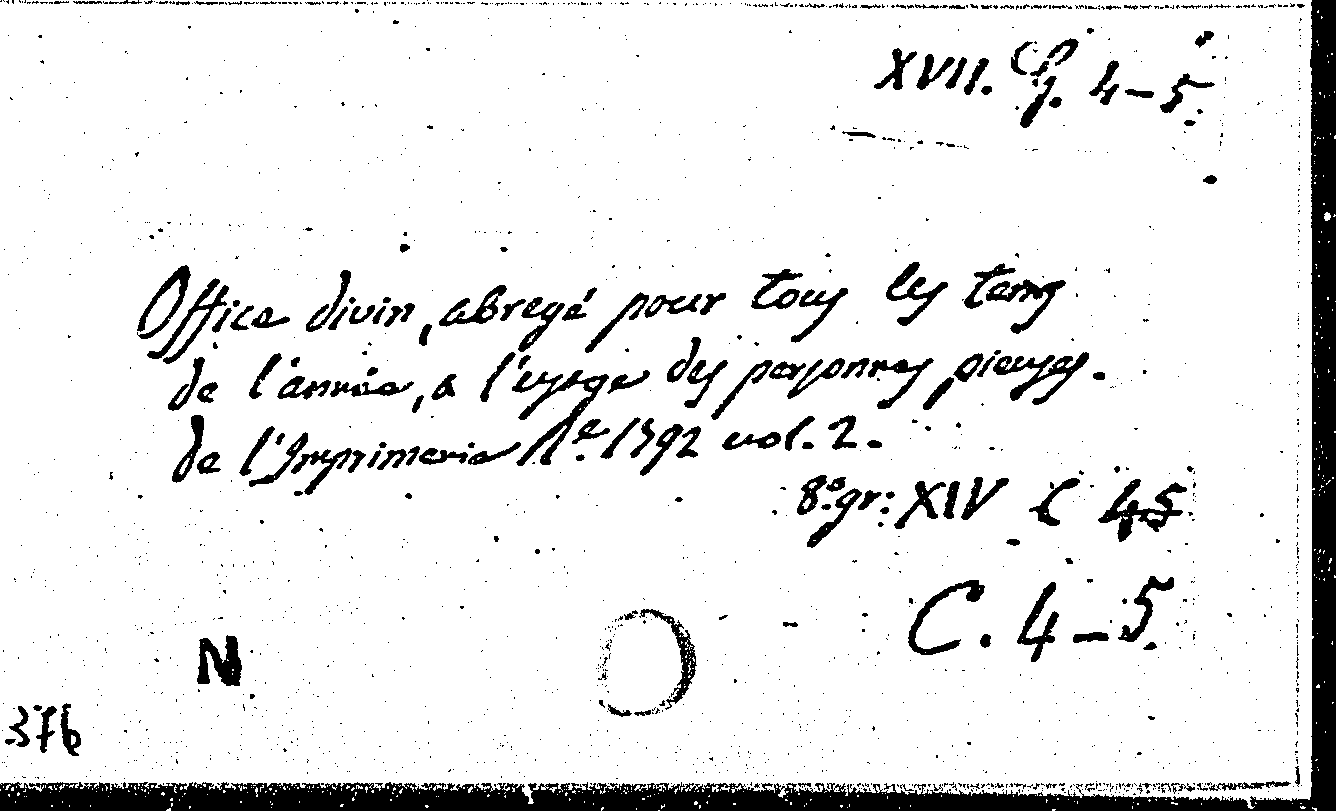 XVII. G. 4-5.
Office divin, abregé pour tous les tems
de l'année, a l'usage des personnes pieuses.
de l'Imprimerie Rle. 1792 vol. 2.
8º gr: XIV C 45
C. 4-5.
N
376